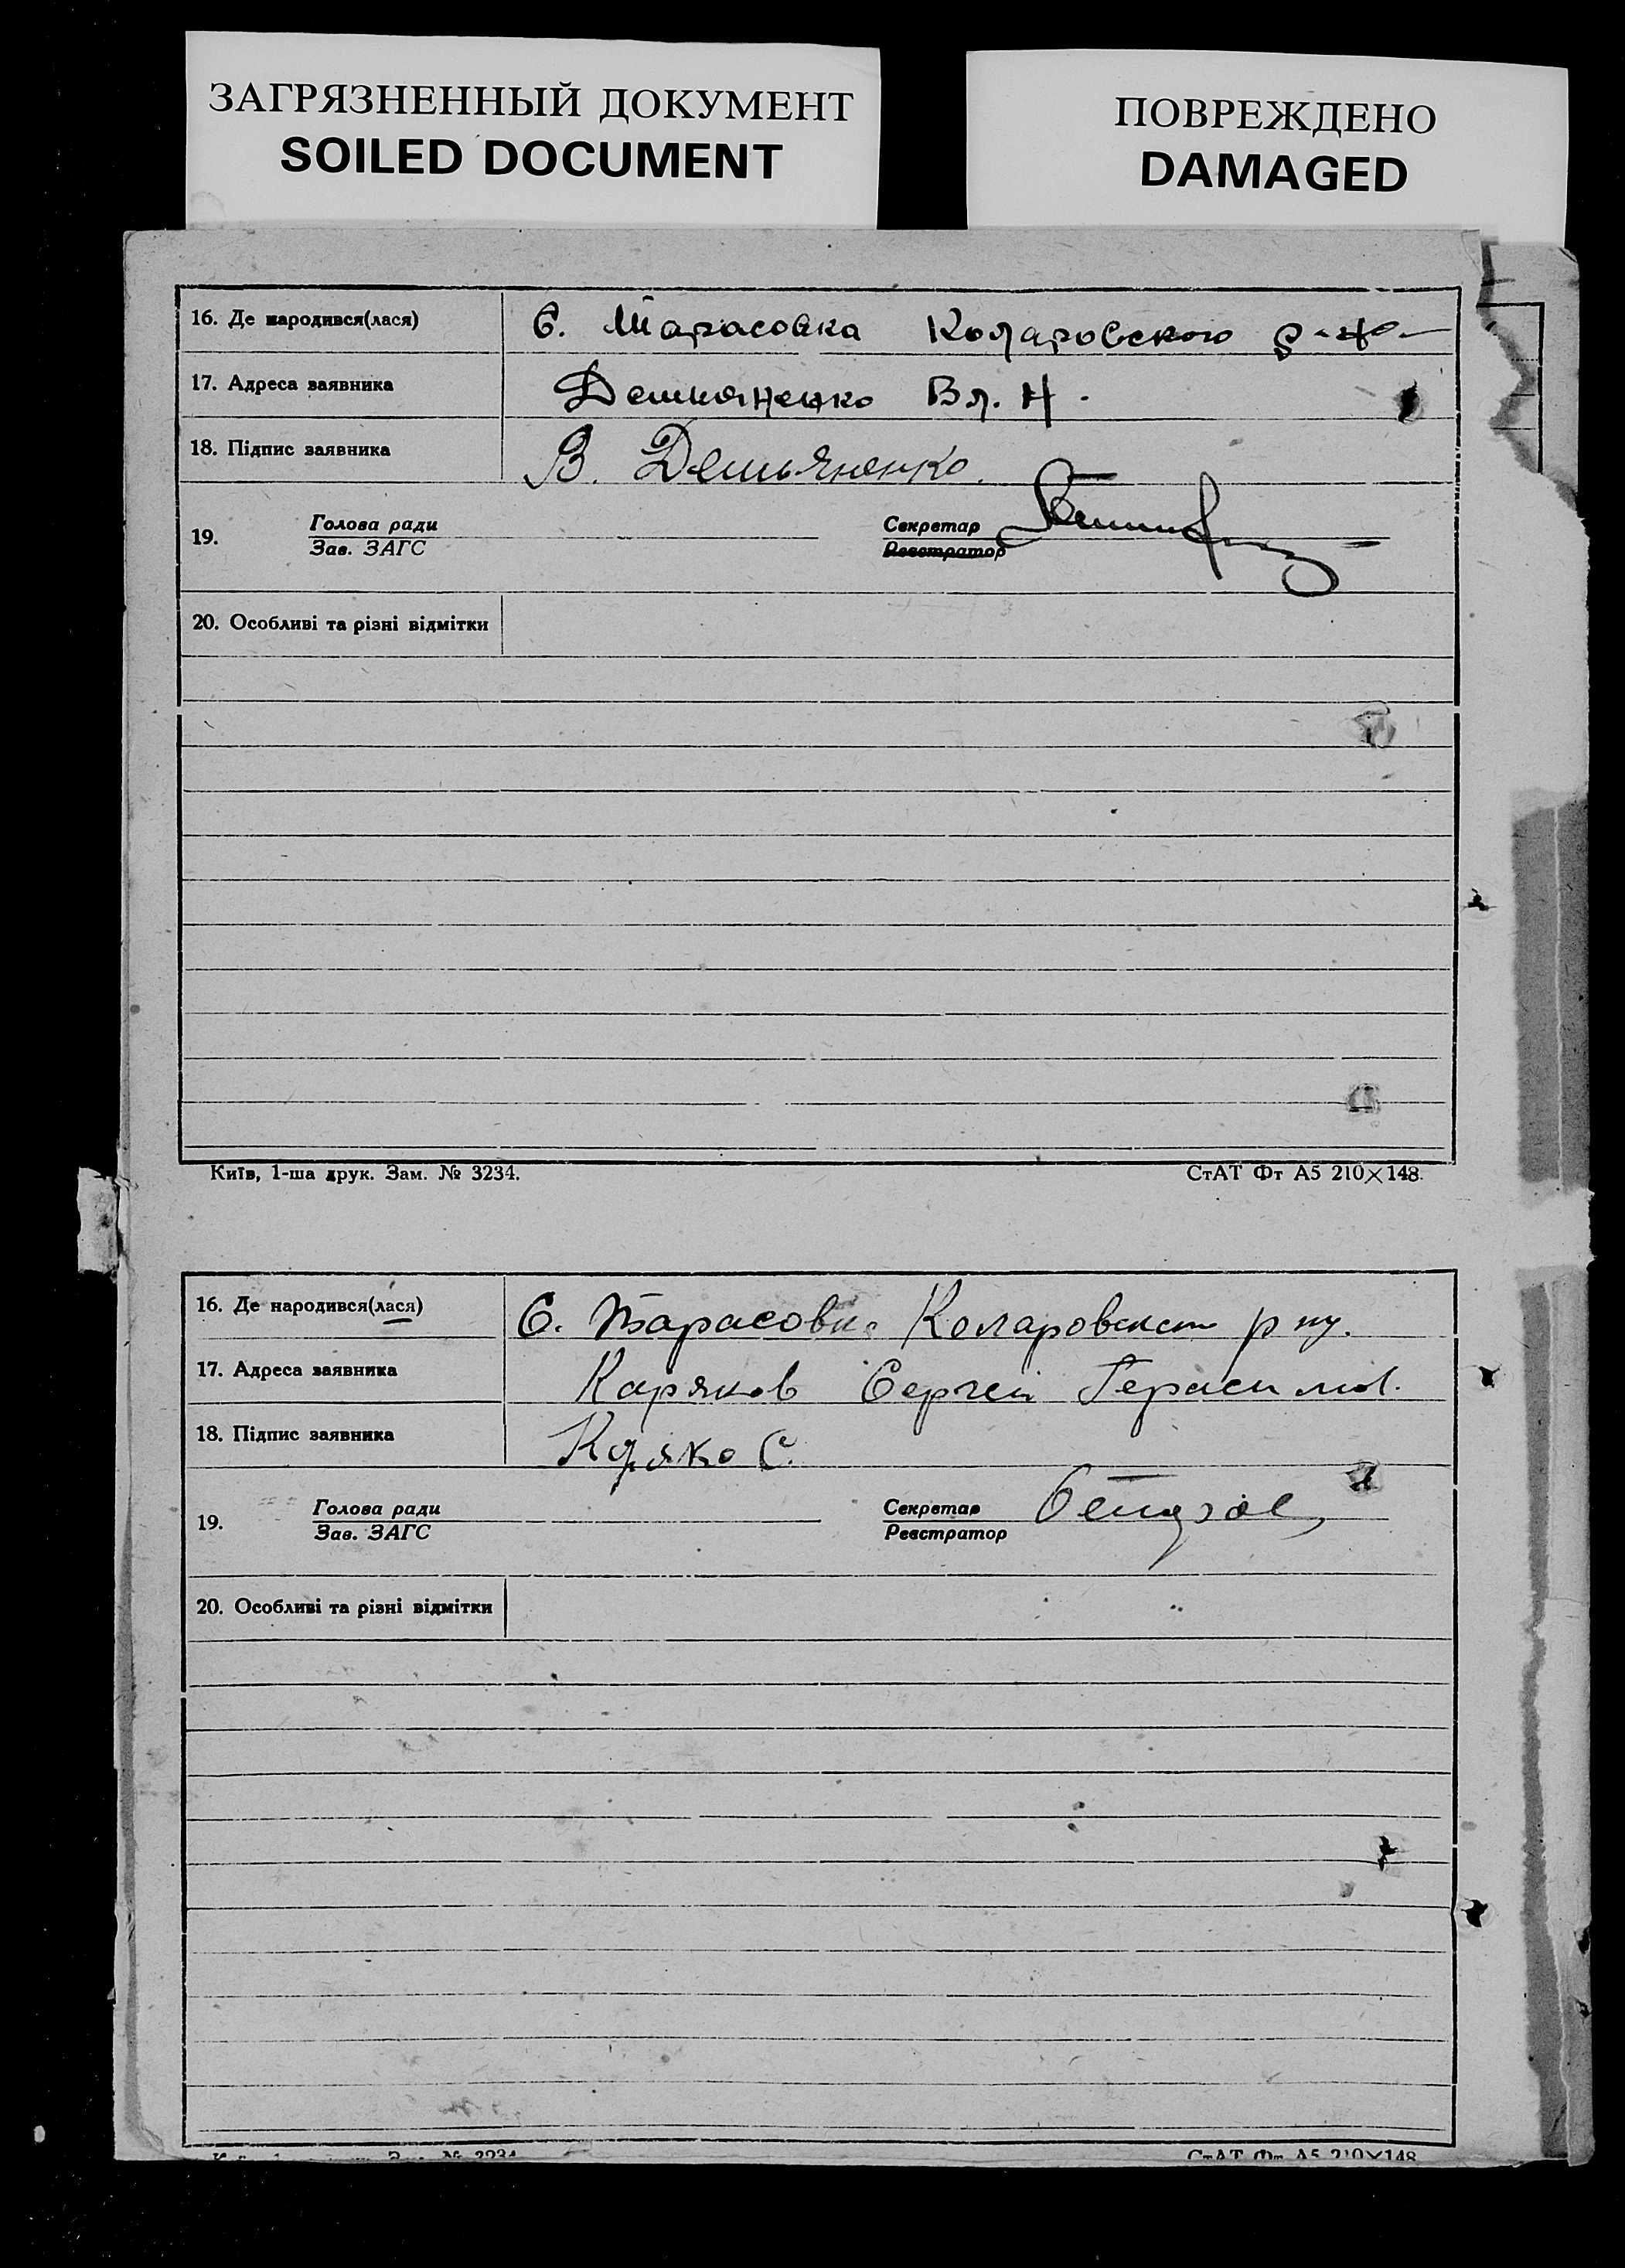 ЗАГРЯЗНЕННЫЙ ДОКУМЕНТ
SOILED DOCUMENT
ПОВРЕЖДЕНО
DAMAGED
16. Де народився(лася) С. Тарасовка Коларовского р-н
17. Адреса заявника Демьяненко Вл. Н.
18. Підпис заявника В. Демьяненко.
19. Голова ради Секретар
Зав. ЗАГС Реєстратор
20. Особливі та різні відмітки
Київ, 1-ша друк. Зам. № 3234. СтАТ Фт А5 210×148.
16. Де народився(лася) С. Тарасовка
17. Адреса заявника Каряков Сергей Герасимов.
18. Підпис заявника
19. Голова ради Секретар
Зав. ЗАГС Реєстратор
20. Особливі та різні відмітки
№ 3234 СтАТ Фт А5 210×148